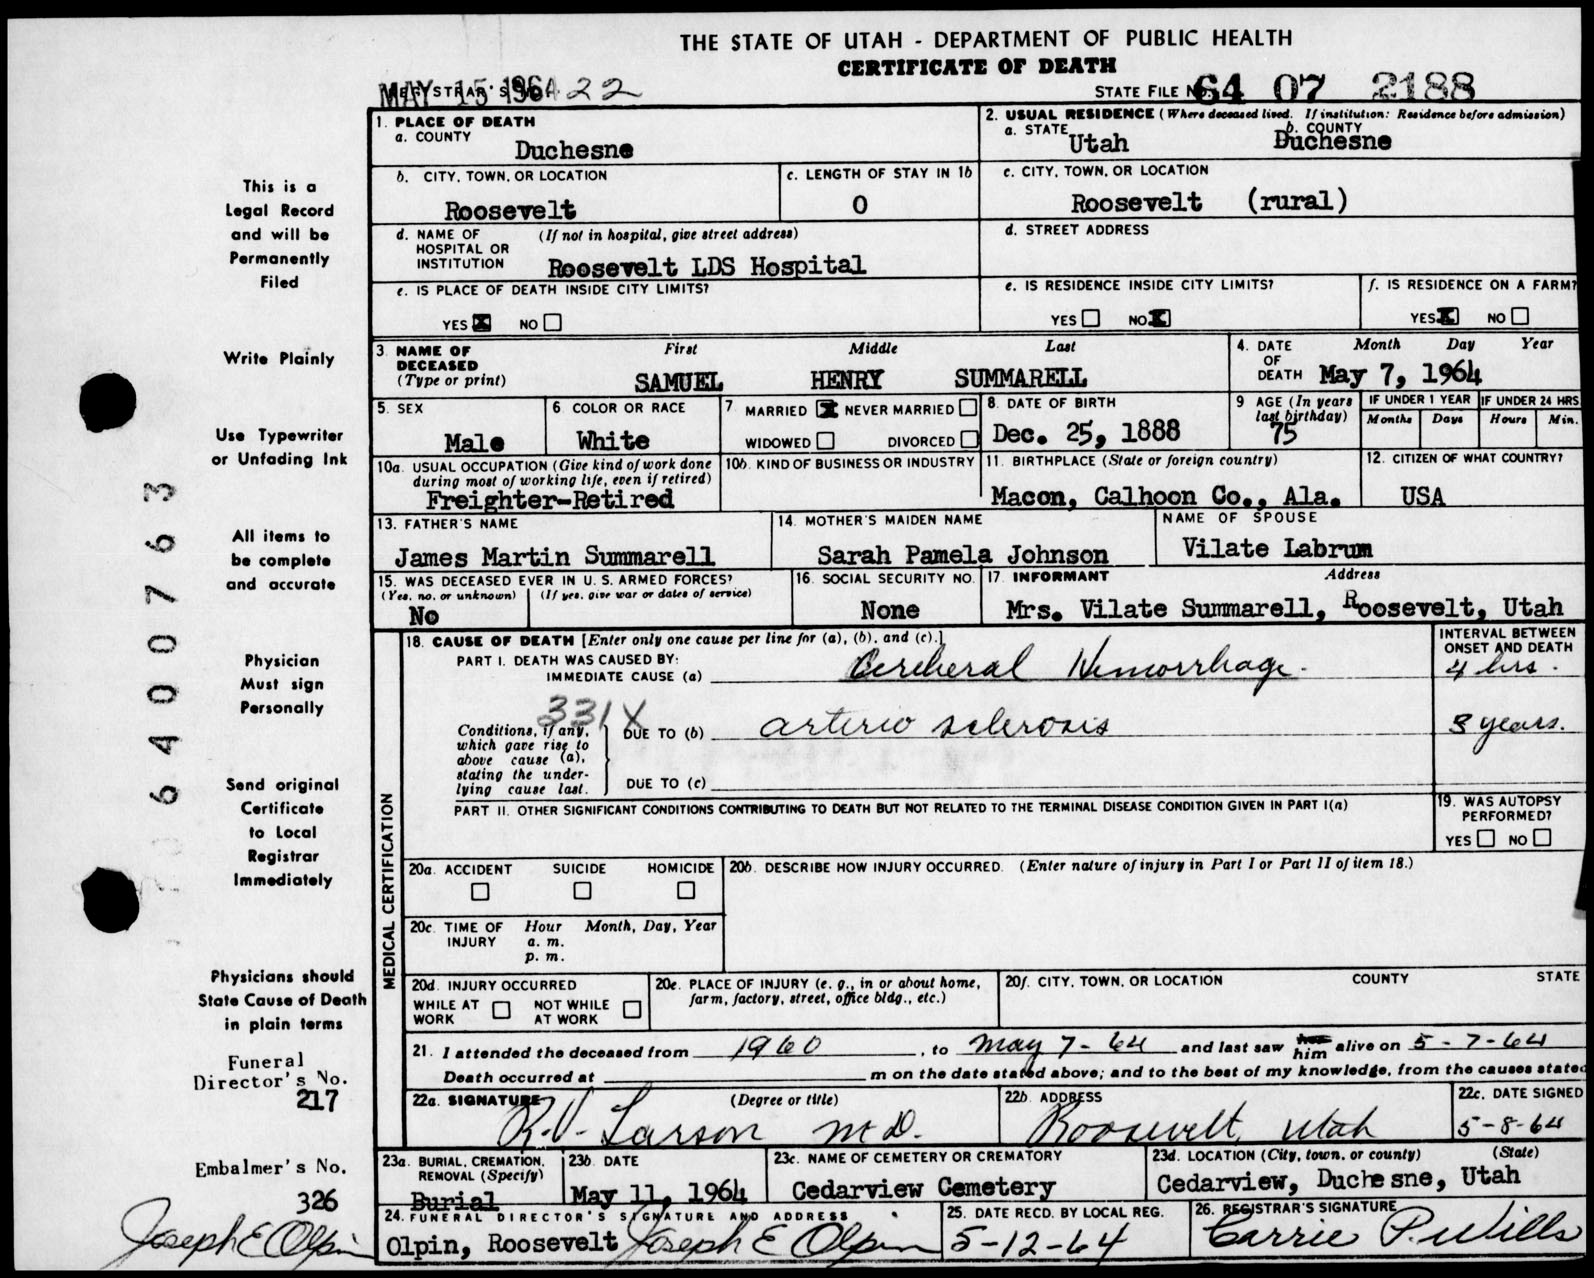 THE STATE OF UTAH - DEPARTMENT OF PUBLIC HEALTH
CERTIFICATE OF DEATH
MAY 15 1964 22
STATE FILE NO. 64 07 2188
1. PLACE OF DEATH
a. COUNTY
Duchesne
2. USUAL RESIDENCE (Where deceased lived. If institution: Residence before admission)
a. STATE
Utah
b. COUNTY
Duchesne
b. CITY, TOWN, OR LOCATION
Roosevelt
c. LENGTH OF STAY IN 1b
0
c. CITY, TOWN, OR LOCATION
Roosevelt (rural)
d. NAME OF HOSPITAL OR INSTITUTION
(If not in hospital, give street address)
Roosevelt LDS Hospital
d. STREET ADDRESS
e. IS PLACE OF DEATH INSIDE CITY LIMITS?
YES X NO
e. IS RESIDENCE INSIDE CITY LIMITS?
YES NO X
f. IS RESIDENCE ON A FARM?
YES X NO
3. NAME OF DECEASED
(Type or print)
First Middle Last
SAMUEL HENRY SUMMARELL
4. DATE OF DEATH
Month Day Year
May 7, 1964
5. SEX
Male
6. COLOR OR RACE
White
7 MARRIED X NEVER MARRIED
WIDOWED DIVORCED
8. DATE OF BIRTH
Dec. 25, 1888
9 AGE (In years last birthday)
75
IF UNDER 1 YEAR
Months Days
IF UNDER 24 HRS
Hours Min.
10a. USUAL OCCUPATION (Give kind of work done during most of working life, even if retired)
Freighter-Retired
10b. KIND OF BUSINESS OR INDUSTRY
11. BIRTHPLACE (State or foreign country)
Macon, Calhoon Co., Ala.
12. CITIZEN OF WHAT COUNTRY?
USA
13. FATHER'S NAME
James Martin Summarell
14. MOTHER'S MAIDEN NAME
Sarah Pamela Johnson
NAME OF SPOUSE
Vilate Labrum
15. WAS DECEASED EVER IN U. S. ARMED FORCES?
(Yes, no, or unknown) (If yes, give war or dates of service)
No
16. SOCIAL SECURITY NO.
None
17. INFORMANT Address
Mrs. Vilate Summarell, Roosevelt, Utah
MEDICAL CERTIFICATION
18. CAUSE OF DEATH [Enter only one cause per line for (a), (b), and (c).]
INTERVAL BETWEEN ONSET AND DEATH
PART I. DEATH WAS CAUSED BY:
IMMEDIATE CAUSE (a) Cerebral Hemorrhage.
4 hrs.
331X
Conditions, if any, which gave rise to above cause (a), stating the underlying cause last.
DUE TO (b) arterio sclerosis
years.
DUE TO (c)
PART II. OTHER SIGNIFICANT CONDITIONS CONTRIBUTING TO DEATH BUT NOT RELATED TO THE TERMINAL DISEASE CONDITION GIVEN IN PART I(a)
19. WAS AUTOPSY PERFORMED?
YES NO
20a. ACCIDENT SUICIDE HOMICIDE
20b. DESCRIBE HOW INJURY OCCURRED. (Enter nature of injury in Part I or Part II of item 18.)
20c. TIME OF INJURY
Hour Month, Day, Year
a. m.
p. m.
20d. INJURY OCCURRED
WHILE AT WORK NOT WHILE AT WORK
20e. PLACE OF INJURY (e. g., in or about home, farm, factory, street, office bldg., etc.)
20f. CITY, TOWN, OR LOCATION COUNTY STATE
21. I attended the deceased from 1960, to May 7-64 and last saw her him alive on 5-7-64
Death occurred at m on the date stated above; and to the best of my knowledge, from the causes stated
22a. SIGNATURE (Degree or title)
R.V. Larson M.D.
22b. ADDRESS
Roosevelt, Utah
22c. DATE SIGNED
5-8-64
23a. BURIAL, CREMATION, REMOVAL (Specify)
Burial
23b. DATE
May 11, 1964
23c. NAME OF CEMETERY OR CREMATORY
Cedarview Cemetery
23d. LOCATION (City, town, or county) (State)
Cedarview, Duchesne, Utah
24. FUNERAL DIRECTOR'S SIGNATURE AND ADDRESS
Olpin, Roosevelt Joseph E Olpin
25. DATE RECD. BY LOCAL REG.
5-12-64
26. REGISTRAR'S SIGNATURE
Carrie P. Wills
This is a
Legal Record
and will be
Permanently
Filed
Write Plainly
Use Typewriter
or Unfading Ink
All items to
be complete
and accurate
Physician
Must sign
Personally
Send original
Certificate
to Local
Registrar
Immediately
Physicians should
State Cause of Death
in plain terms
Funeral
Director's No.
217
Embalmer's No.
326
Joseph E Olpin
6400763